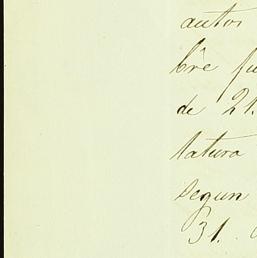 autos
bre fu
de 21.
latura
segun
31.